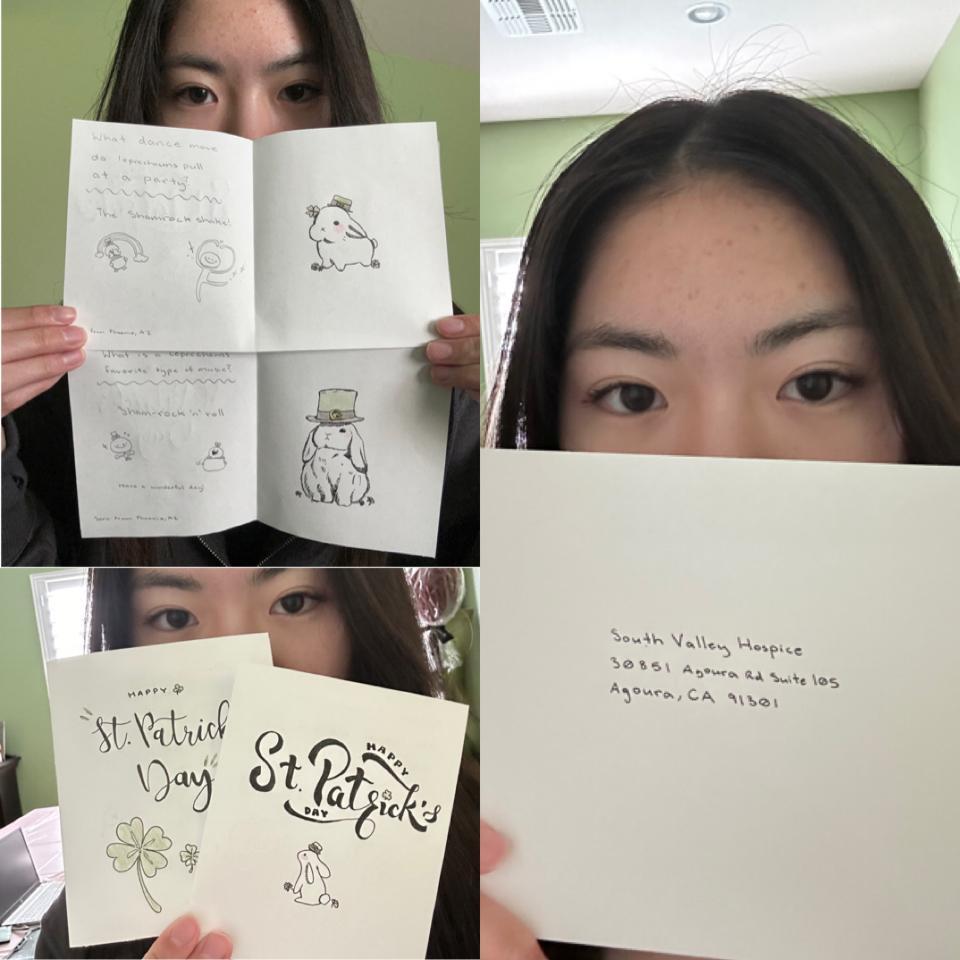 What dance move
do leprechauns pull
at a party?
The Shamrock shake!
from Phoenix, AZ
What is a leprechauns
favorite type of music?
"Sham-rock 'n' roll
Have a wonderful day!
from Phoenix, AZ
HAPPY
St. Patrick
Day
HAPPY
St. Patrick's
DAY
South Valley Hospice
30851 Agoura Rd Suite 105
Agoura, CA 91301